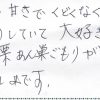 甘さでくどくなく
していて 大好き
栗あん巣ごもりが
です。